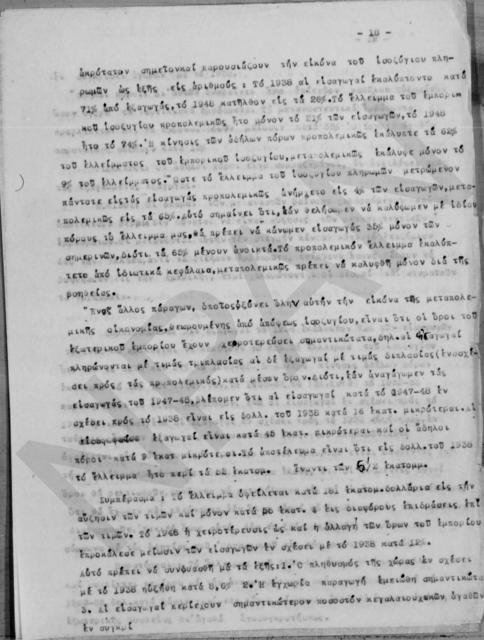 - 18 -
ἀκρότατον σημεῖον καί παρουσιάζουν τήν εἰκόνα τοῦ ἰσοζύγιου πλη-
ρωμῶν ὡς ἑξῆς εἰς ἀριθμούς: Τό 1938 αἱ εἰσαγωγαί ἐκαλύπτοντο κατά
71% ἀπό ἐξαγωγάς, τό 1948 κατῆλθον εἰς τά 26%. Τό ἔλλειμμα τοῦ ἐμπορι-
κοῦ ἰσοζυγίου προπολεμικῶς ἦτο μόνον τό 21% τῶν εἰσαγωγῶν, τό 1948
ἦτο τό 74%. Ἡ κίνησις τῶν ἀδήλων πόρων προπολεμικῶς ἐκάλυπτε τά 62%
τοῦ ἐλλείμματος τοῦ ἐμπορικοῦ ἰσοζυγίου, μεταπολεμικῶς ἐκάλυψε μόνον τό
9% τοῦ ἐλλείμματος. Ὥστε τό ἔλλειμμα τοῦ ἰσοζυγίου πληρωμῶν μετρώμενον
πάντοτε εἰς τάς εἰσαγωγάς προπολεμικῶς ἀνήρχετο εἰς 4% τῶν εἰσαγωγῶν, μετα-
πολεμικῶς εἰς τά 65%. Αὐτό σημαίνει ὅτι, ἐάν θελήσωμεν νά καλύψωμεν μέ ἰδίους
πόρους τό ἔλλειμμά μας, θά πρέπει νά κάνωμεν εἰσαγωγάς 35% μόνον τῶν
σημερινῶν, διότι τά 65% μένουν ἀνοικτά. Τό προπολεμικόν ἔλλειμμα ἐκαλύπ-
τετο ἀπό ἰδιωτικά κεφάλαια, μεταπολεμικῶς πρέπει νά καλυφθῇ μόνον διά τῆς
βοηθείας.
Ἕνας ἄλλος παράγων, ὁ ὁποῖος ὀξύνει ὅλην αὐτήν τήν εἰκόνα τῆς μεταπολε-
μικῆς οἰκονομίας, θεωρουμένης ὑπό ἀπόψεως ἰσοζυγίου, εἶναι ὅτι οἱ ὅροι τοῦ
ἐξωτερικοῦ ἐμπορίου ἔχουν χειροτερεύσει σημαντικώτατα, δηλ. αἱ εἰσαγωγαί
πληρώνονται μέ τιμάς τριπλασίας αἱ δέ ἐξαγωγαί μέ τιμάς διπλασίας (ἐν σχέ-
σει πρός τάς προπολεμικάς) κατά μέσον ὅρον. Διότι, ἐάν ἀναγάγωμεν τάς
εἰσαγωγάς τοῦ 1947-48, βλέπομεν ὅτι αἱ εἰσαγωγαί κατά τό 1947-48 ἐν
σχέσει πρός τό 1938 εἶναι εἰς δολλ. τοῦ 1938 κατά 16 ἑκατ. μικρότεραι. Αἱ
ἐξαγωγαί εἶναι κατά 45 ἑκατ. μικρότεραι καί οἱ ἄδηλοι
πόροι κατά 9 ἑκατ. μικρότεροι. Τό ἀποτέλεσμα εἶναι ὅτι εἰς δολλ. τοῦ 1938
τό ἔλλειμμα ἦτο περί τά ἑκατομ. ἔναντι τῶν 5/2 ἑκατομμ.
Συμπέρασμα: τό ἔλλειμμα ὀφείλεται κατά ἑκατομ. δολλάρια εἰς τήν
αὔξησιν τῶν τιμῶν καί μόνον κατά ἑκατ. εἰς διαφόρους ἐπιδράσεις ἐπί
τῶν τιμῶν. Τό 1948 ἡ χειροτέρευσις ὡς καί ἡ ἀλλαγή τῶν ὅρων τοῦ ἐμπορίου
ἐπροκάλεσε μείωσιν τῶν εἰσαγωγῶν ἐν σχέσει μέ τό 1938 κατά 12%.
Αὐτό πρέπει νά συνδυασθῇ μέ τά ἑξῆς: 1. Ὁ πληθυσμός τῆς χώρας ἐν σχέσει
μέ τό 1938 ηὐξήθη κατά 8,6% 2. Ἡ ἐγχωρία παραγωγή ἐμειώθη σημαντικώτατα
3. Αἱ εἰσαγωγαί περιέχουν σημαντικώτερον ποσοστόν κεφαλαιουχικῶν ἀγαθῶν
ἐν συγκρί